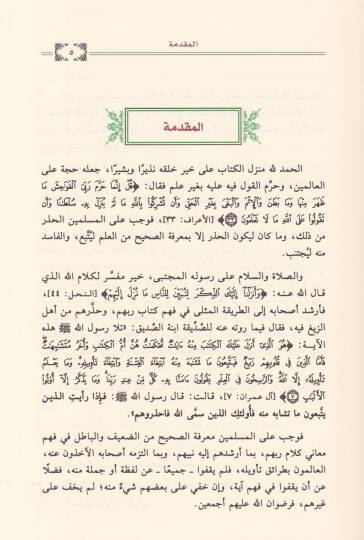 المقدمة
٥
المقدمة
الحمد لله منزل الكتاب على خير خلقه نذيرًا وبشيرًا، جعله حجة على
العالمين، وحرَّم القول فيه عليه بغير علم فقال: ﴿قُلْ إِنَّمَا حَرَّمَ رَبِّيَ الْفَوَاحِشَ مَا
ظَهَرَ مِنْهَا وَمَا بَطَنَ وَالْإِثْمَ وَالْبَغْيَ بِغَيْرِ الْحَقِّ وَأَن تُشْرِكُوا بِاللَّهِ مَا لَمْ يُنَزِّلْ بِهِ سُلْطَانًا وَأَن
تَقُولُوا عَلَى اللَّهِ مَا لَا تَعْلَمُونَ ﴿٣٣﴾﴾ [الأعراف: ٣٣]، فوجب على المسلمين الحذر
من ذلك، وما كان ليكون الحذر إلا بمعرفة الصحيح من العلم ليُتَّبع، والفاسد
منه ليُجتنب.
والصلاة والسلام على رسوله المجتبى، خير مفسِّر لكلام الله الذي
قال الله عنه: ﴿وَأَنزَلْنَا إِلَيْكَ الذِّكْرَ لِتُبَيِّنَ لِلنَّاسِ مَا نُزِّلَ إِلَيْهِمْ﴾ [النحل: ٤٤]،
فأرشد أصحابه إلى الطريقة المثلى في فهم كتاب ربهم، وحذَّرهم من أهل
الزيغ فيه، فقال فيما روته عنه الصِّدِّيقة ابنة الصِّديق: «تلا رسول الله ﷺ هذه
الآية: ﴿هُوَ الَّذِي أَنزَلَ عَلَيْكَ الْكِتَابَ مِنْهُ آيَاتٌ مُّحْكَمَاتٌ هُنَّ أُمُّ الْكِتَابِ وَأُخَرُ مُتَشَابِهَاتٌ
فَأَمَّا الَّذِينَ فِي قُلُوبِهِمْ زَيْغٌ فَيَتَّبِعُونَ مَا تَشَابَهَ مِنْهُ ابْتِغَاءَ الْفِتْنَةِ وَابْتِغَاءَ تَأْوِيلِهِ وَمَا يَعْلَمُ
تَأْوِيلَهُ إِلَّا اللَّهُ وَالرَّاسِخُونَ فِي الْعِلْمِ يَقُولُونَ آمَنَّا بِهِ كُلٌّ مِّنْ عِندِ رَبِّنَا وَمَا يَذَّكَّرُ إِلَّا أُولُوا
الْأَلْبَابِ ﴿٧﴾﴾ [آل عمران: ٧]، قالت: قال رسول الله ﷺ: فإذا رأيتِ الذين
يتَّبعون ما تشابه منه فأولئكِ الذين سمَّى الله فاحذروهم».
فوجب على المسلمين معرفة الصحيح من الضعيف والباطل في فهم
معاني كلام ربهم، بما أرشدهم إليه نبيهم، وبما التزمه أصحابه الآخذون عنه،
العالمون بطرائق تأويله، فلم يقفوا ـ جميعًا ـ عن لفظة أو جملة منه، فضلًا
عن أن يقفوا في فهم آية، وإن خفي على بعضهم شيءٌ منه؛ لم يخف على
غيرهم، فرضوان الله عليهم أجمعين.